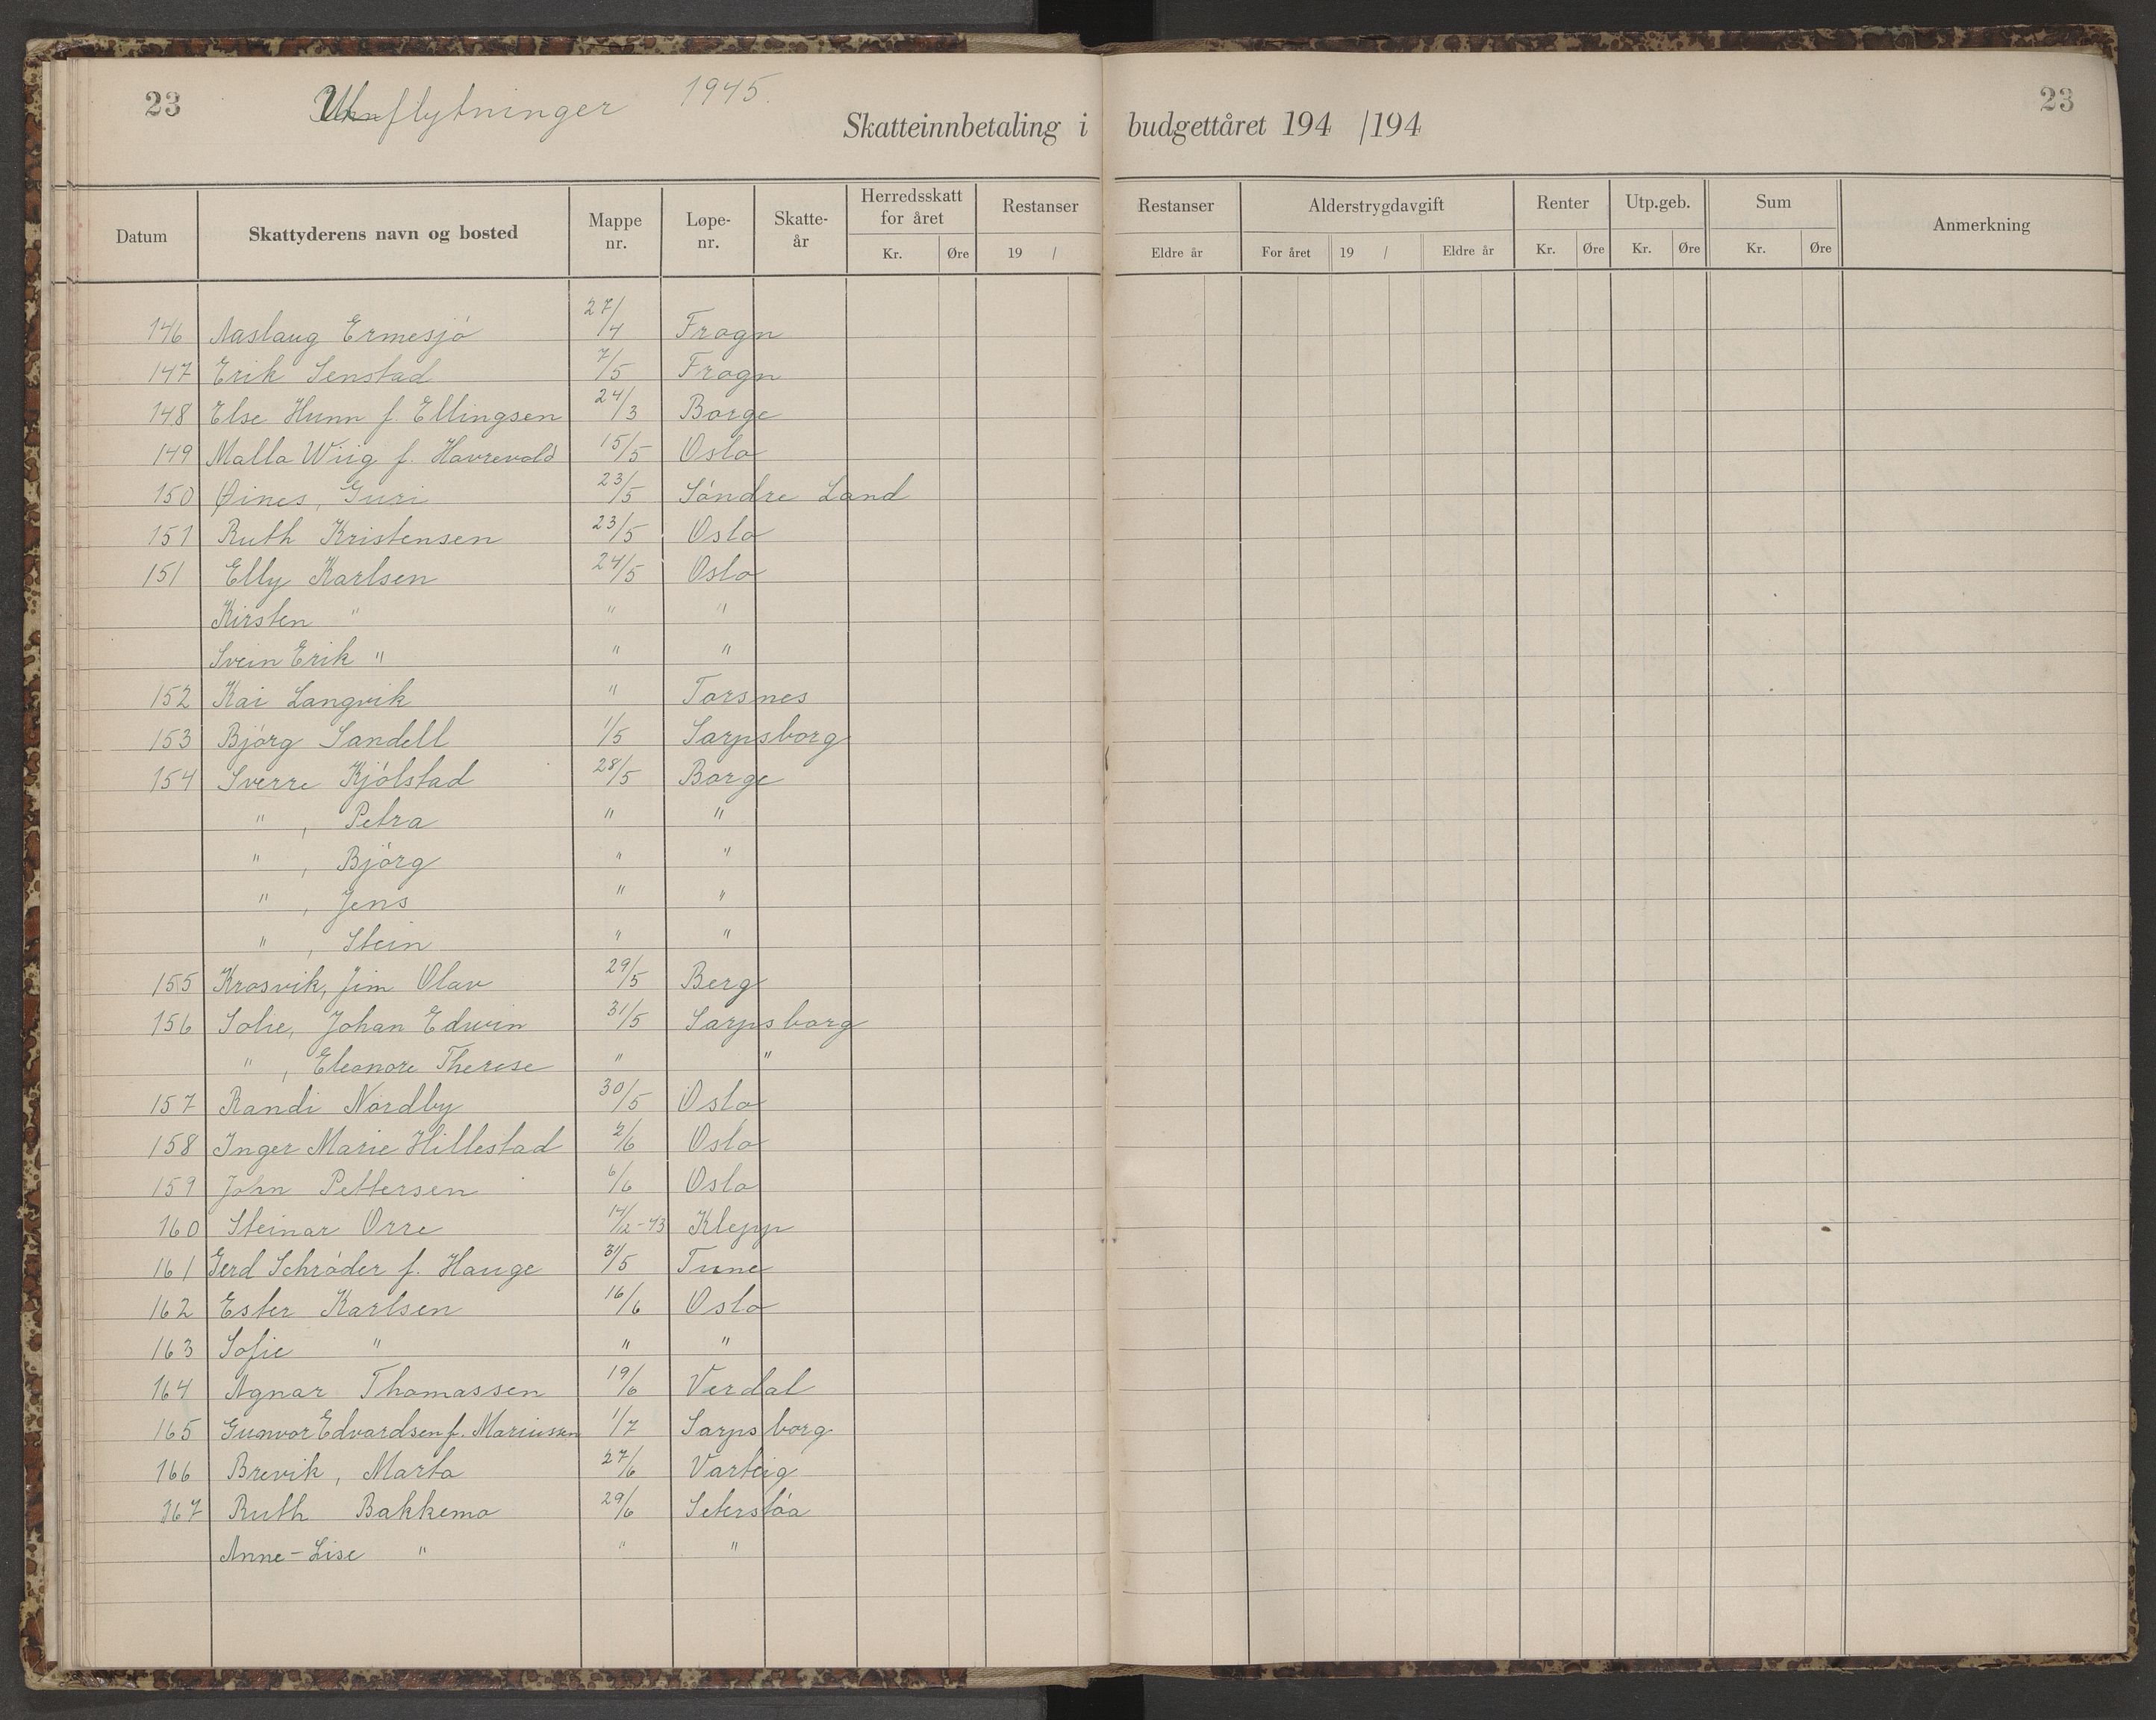 23 Utflytninger 1945. 23
Skatteinnbetaling i budgettåret 194 /194
Datum Skattyderens navn og bosted Mappe nr. Løpe- nr. Skatte- år Herredsskatt for året Kr. Øre Restanser 19 / Restanser Eldre år Alderstrygdavgift For året 19 / Eldre år Renter Kr. Øre Utp.geb. Kr. Øre Sum Kr. Øre Anmerkning
146 Aaslaug Ermesjö 27/4 Frogn
147 Erik Senstad 7/5 Frogn
148 Else Hunn f. Ellingsen 24/3 Borge
149 Malla Wiig f. Havrevold 15/5 Oslo
150 Øines, Guri 23/5 Söndre Land
151 Ruth Kristensen 23/5 Oslo
151 Elly Karlsen 24/5 Oslo
Kirsten " " "
Svein Erik " " "
152 Kai Langvik " Torsnes
153 Björg Sandell 1/5 Sarpsborg
154 Sverre Kjölstad 28/5 Borge
" , Petra " "
" , Björg " "
" , Jens " "
" , Stein " "
155 Krosvik, Jim Olav 29/5 Berg
156 Solie, Johan Edwin 31/5 Sarpsborg
" , Eleonore Therese " "
157 Randi Nordby 30/5 Oslo
158 Inger Marie Hillestad 2/6 Oslo
159 John Pettersen 6/6 Oslo
160 Steinar Orre 14/12-43 Klepp
161 Gerd Schröder f. Hauge 31/5 Tune
162 Ester Karlsen 16/6 Oslo
163 Sofie " " "
164 Agnar Thomassen 19/6 Verdal
165 Gunvor Edvardsen f. Mariussen 1/7 Sarpsborg
166 Brevik, Marta 27/6 Varteig
167 Ruth Bakkemo 29/6 Seterstöa
Anne-Lise " " "